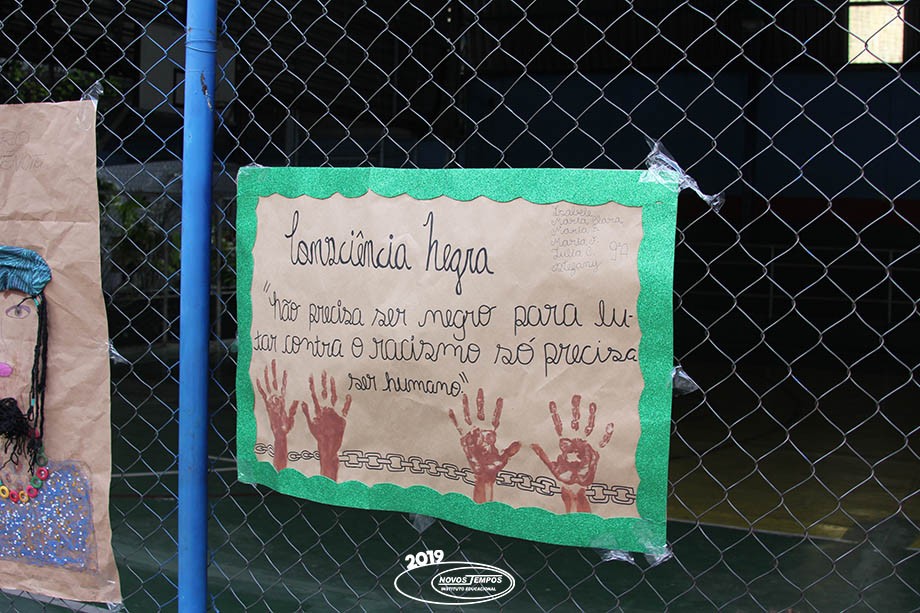 Consciência Negra
Isabele
Maria Clara
Maria F.
Maria J.
Julia C.
9ºA
"Não precisa ser negro para lu-
tar contra o racismo só precisa
ser humano"
2019
NOVOS TEMPOS
INSTITUTO EDUCACIONAL